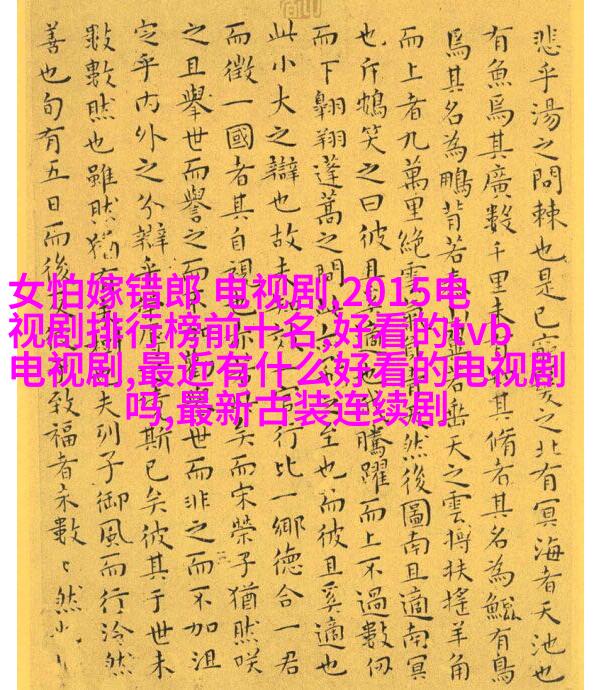 女怕嫁错郎 电视剧,2015电
视剧排行榜前十名,好看的tvb
电视剧,最近有什么好看的电视剧
吗,最新古装连续剧
悲乎湯之問棘也是已之北有冥海者天池也
有魚焉其廣數千里未其脩者其名為鯤有鳥
焉其名為鵬背若垂天之雲摶扶搖羊角
而上者九萬里絕雲然後圖南且適南冥
也斥鴳笑之曰彼且騰躍而上不過數仞
而下翱翔蓬蒿之間至也而彼且奚適也
此小大之辯也故夫行比一鄉德合一君
而徵一國者其自視也矣而宋榮子猶然咲
之且舉世而譽之而非之而不加沮
定乎內外之分辯乎斯已矣彼其于世未
數數然也雖然猶有夫列子御風而行泠然
善也旬有五日而後致福者未數〻然也